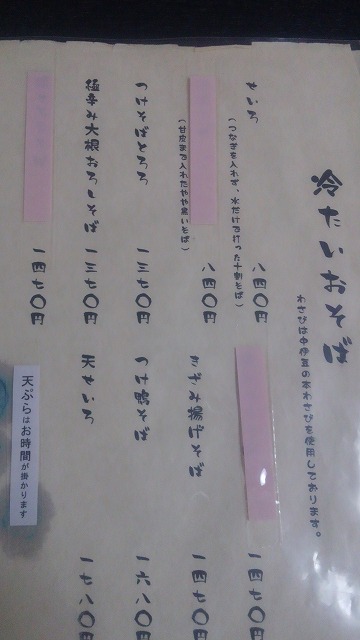 冷たいおそば
わさびは中伊豆の本わさびを使用しております。
せいろ 八四〇円
(つなぎを入れず、水だけで打った十割そば)
八四〇円
(甘皮まで入れたやや黒いそば)
つけそばとろろ 一三七〇円
極辛み大根おろしそば 一三七〇円
一四七〇円
一四七〇円
きざみ揚げそば 一四七〇円
つけ鴨そば 一六八〇円
天せいろ 一七八〇円
天ぷらはお時間が掛かります